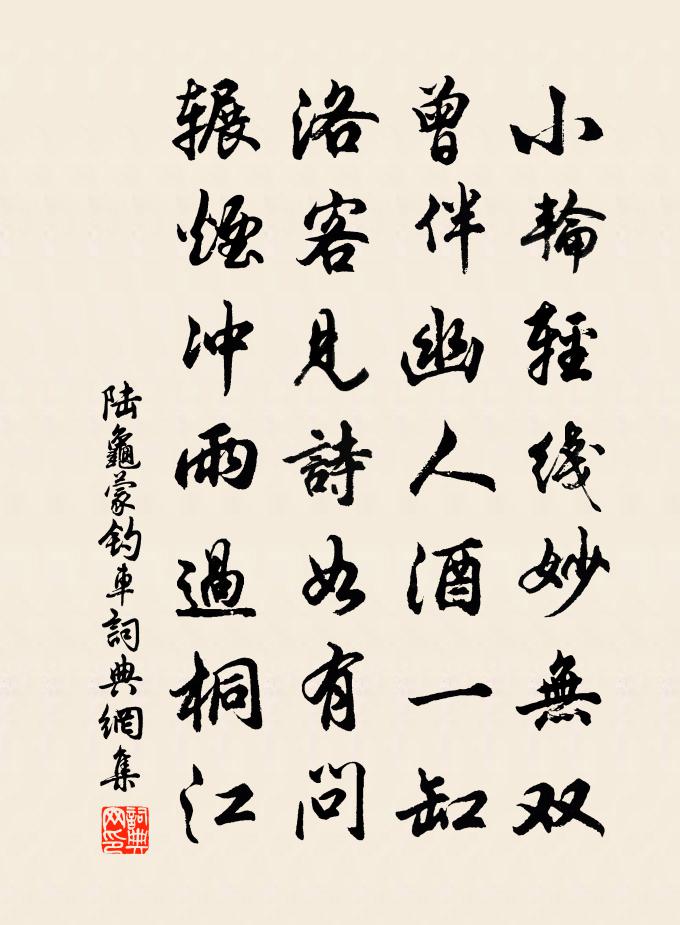 小輪輕线妙無双
曾伴幽人酒一缸
洛客見詩如有問
辗煙冲雨過桐江
陆龜蒙钓車詞典網集
詞典网印